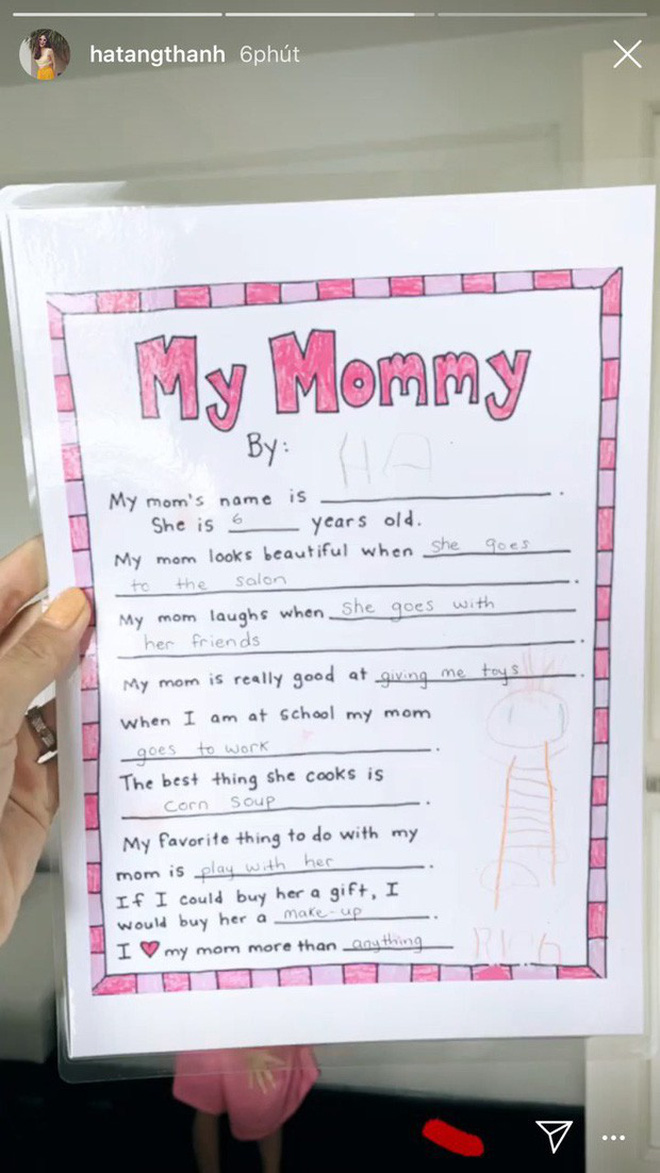 hatangthanh 6phút
My Mommy
By: HA
My mom's name is ________.
She is 6 years old.
My mom looks beautiful when she goes
to the salon.
My mom laughs when she goes with
her friends.
My mom is really good at giving me toys.
When I am at school my mom
goes to work.
The best thing she cooks is
corn soup.
My favorite thing to do with my
mom is play with her.
If I could buy her a gift, I
would buy her a make-up.
I ♥ my mom more than anything